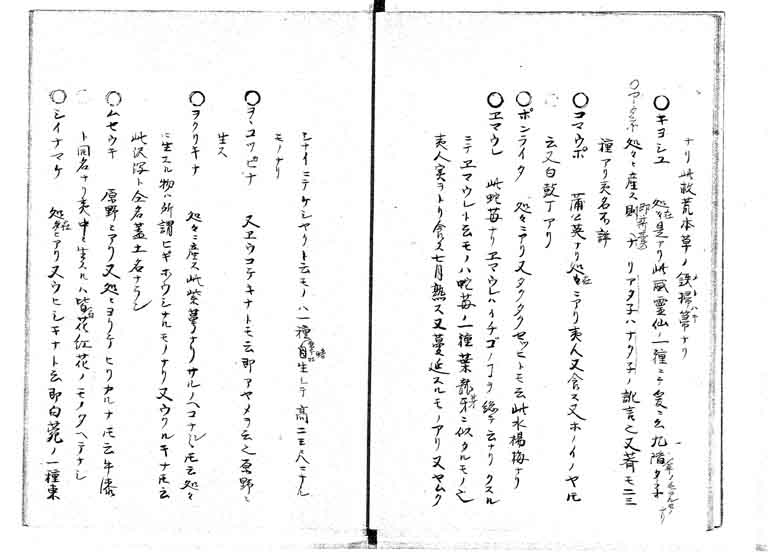 ナリ此救荒本草ノ鉄掃箒ナリ
○キヨシユ 処々是アリ此威霊仙ノ一種ニテ
処々ニ産ス則 ナリアタ子ハナタ子ノ訛言之又菁モ二三
種アリ夷名不詳
○コマウポ 蒲公英ナリ処々ニアリ夷人又食ス又ホノイノヤルモ
云又白鼓丁アリ
○ポンライタ 処々ニアリ又タクタクセッヒトモ云此水楊梅ナリ
○ヱマウレ 此蛇苺ナリヱマウレハイチゴノ ヲ総テ云ナリクスル
ニテヱマウレト云モノハ蛇苺ノ一種葉龍牙ニ似タルモノ之
夷人実ヲトリ食ス七月熟ス又蔓延スルモノアリ又ヤムク
シナイニテケシヤクト云モノハ一種自生シテ高二三尺ニナル
モノナリ
○ヲヽユツピナ 又ヱウコテキナトモ云即アヤメヲ云之原野ニ
生ス
○ヲクリキナ 処々ニ産ス此紫萼ナリサルノヘコナルモ云処々
ニ生スル物ハ所謂ヒギボウシナルモノナリ又ウクルキナモ云
此沢瀉ト仝名蓋土名ナラン
○ムセウキ 原野ニアリ又処々ヨリケヒリカルナモ云牛漆
ト同名ナリ夷中ニ生スルハ皆花紅花ノモノタヘテナシ
○シイナマケ 処々ニアリ又ウヒシキナト云即白菀ノ一種東